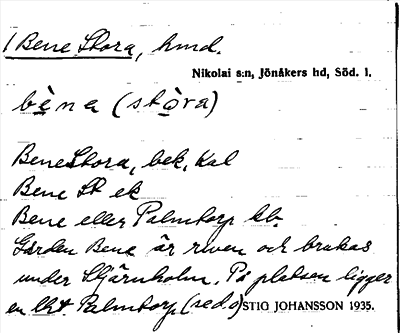 1 Bene Stora, hmd.
Nikolai s:n, Jönåkers hd, Söd. l.
bèna (stòra)
Bene Stora, bek, Kal
Bene St ek
Bene eller Palmtorp kb.
Gården Bene är riven och brukas
under Stjärnholm. På platsen ligger
en lht. Palmtorp (se d.o)
STIG JOHANSSON 1935.